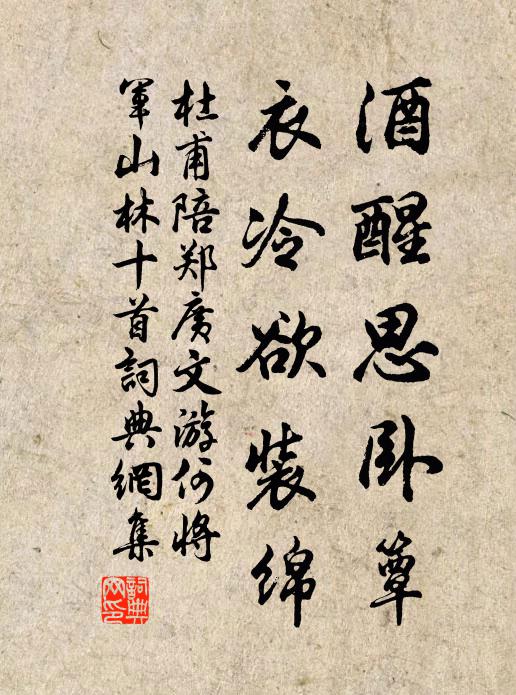 酒醒思卧簟
衣冷欲装绵
杜甫陪郑广文游何将
军山林十首詞典網集
詞典
网印